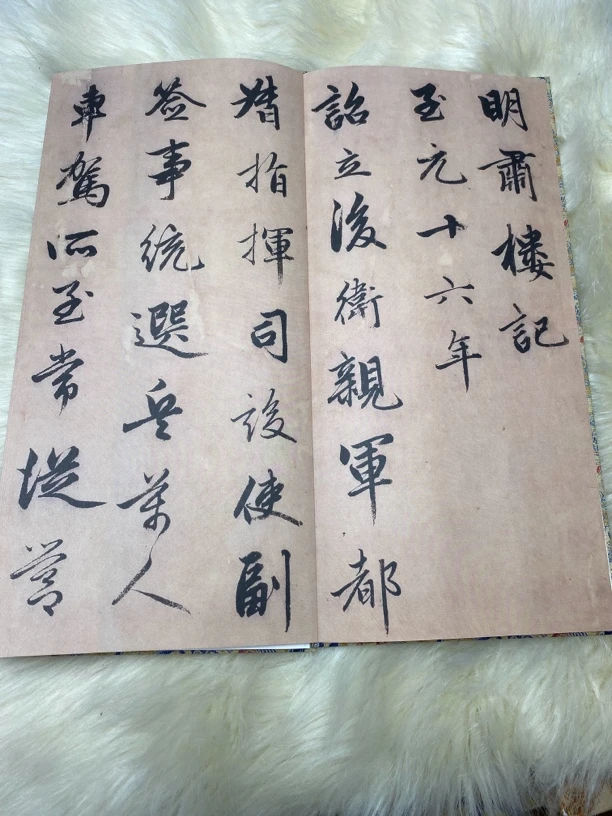 明肅樓記
至元十六年
詔立後衛親軍都
指揮司設使副
簽事統選兵萬人
車駕所至常從營